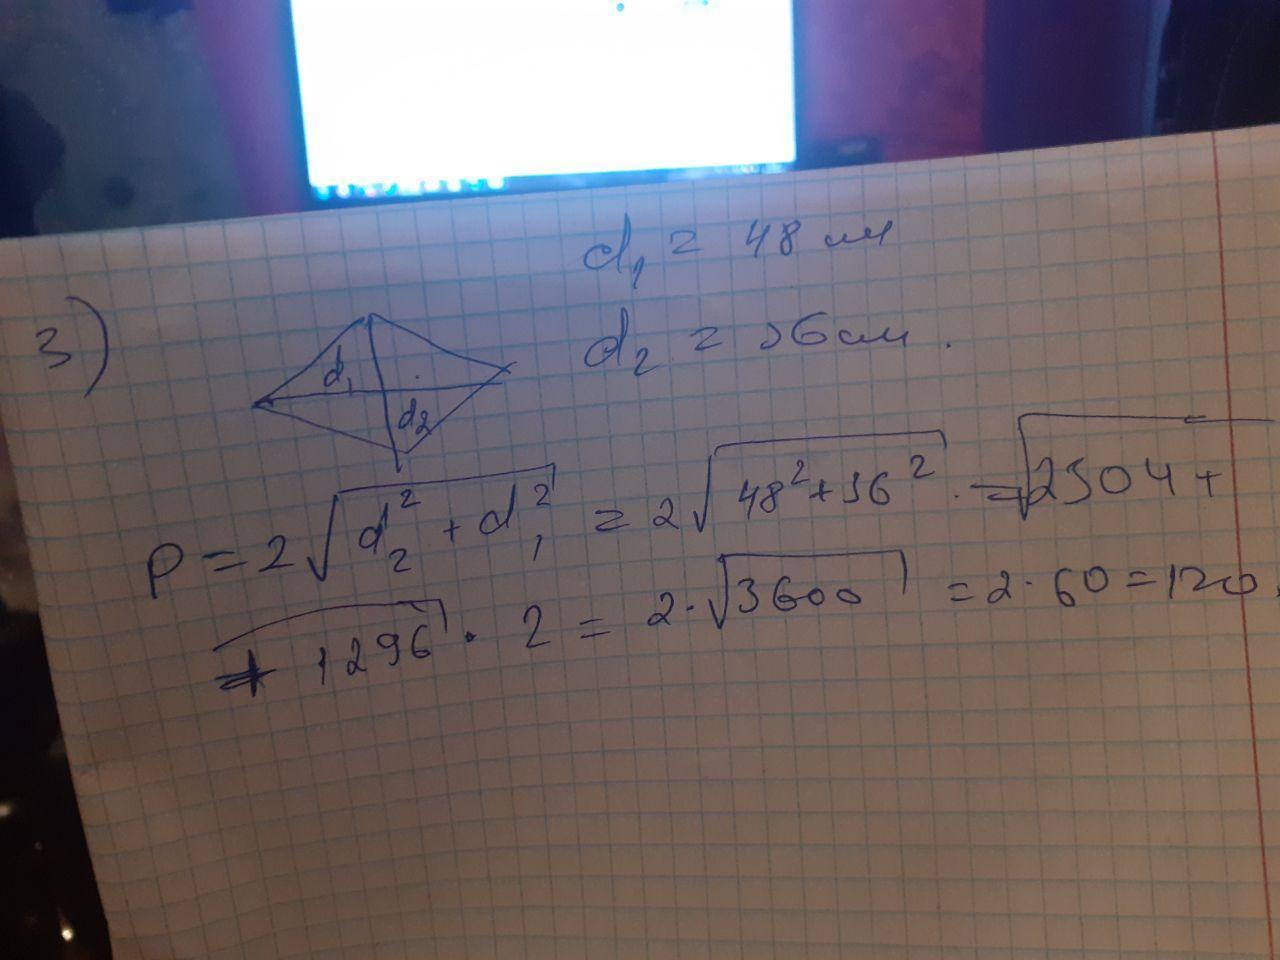 d₁ = 48 см
3)
d₂ = 36 см.
d₁
d₂
P = 2√(d₂² + d₁²) = 2√(48² + 36²) = √2304 +
+ 1296 · 2 = 2·√3600 = 2·60 = 120